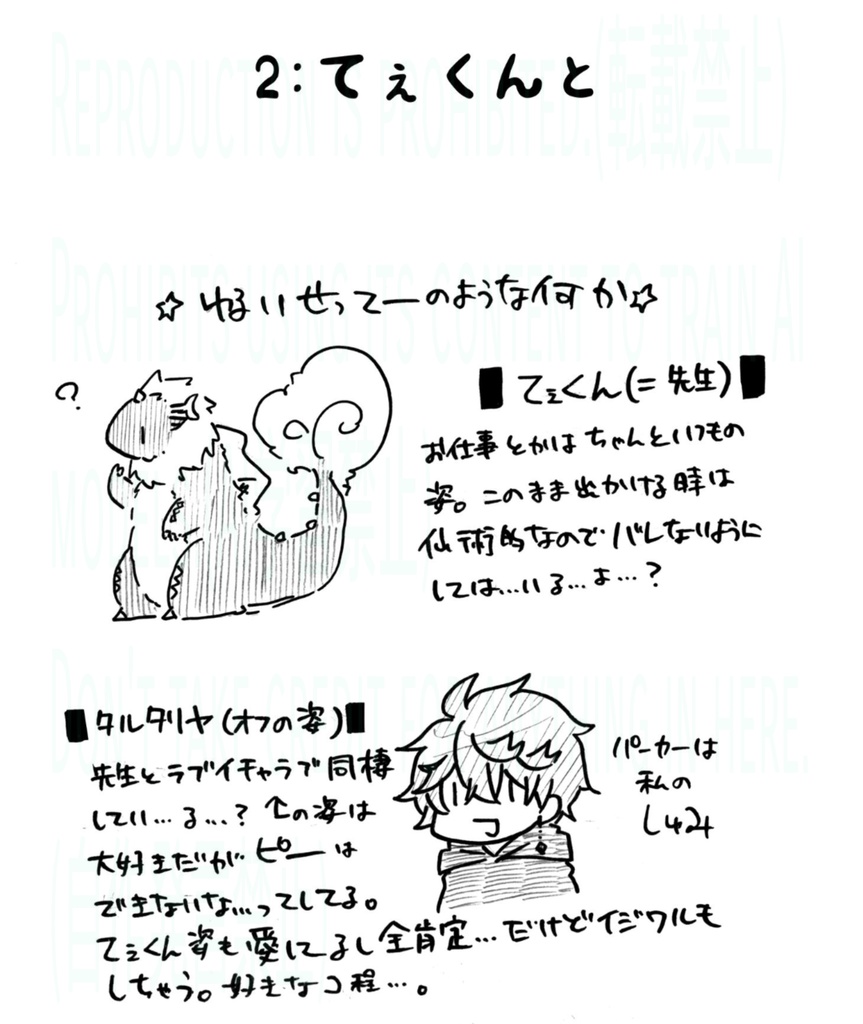 2:てぇくんと
☆ゆるいせってーのようなイ何か☆
?
■てぇくん(=先生)■
お仕事とかはちゃんといつもの
姿。このまま出かける時は
仙術的なのでバレないように
しては…いる…よ…?
■タルタリヤ(オフの姿)■
先生とラブイチャラブ同棲
してい…る…?↑の姿は
大好きだがピーは
できないな…ってしてる。
てぇくん姿も愛してるし全肯定…だけどイジワルも
しちゃう。好きなコ程…。
パーカーは
私の
しゅみ
REPRODUCTION IS PROHIBITED.(転載禁止)
PROHIBITS USING ITS CONTENT TO TRAIN AI
MODELS
DON'T TAKE CREDIT FOR ANYTHING IN HERE.